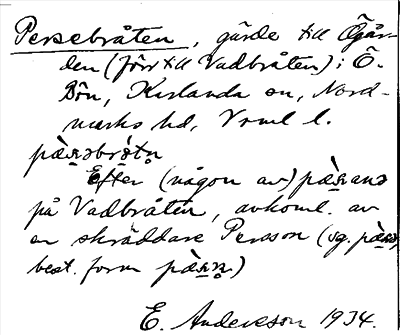 Persebråten, gärde till Ögår-
den (förr till Vadbråten) i Ö.
Bön, Karlanda sn, Nord-
marks hd, Vrml l.
pæ̀ʂəbrǿtn̥
Efter (någon av) pæ̀ʂanə
på Vadbråten, avkoml. av
en skräddare Persson (sg. pæ̀ʂ,
best. form pæ̀ʂn̥)
E. Anderson 1934.